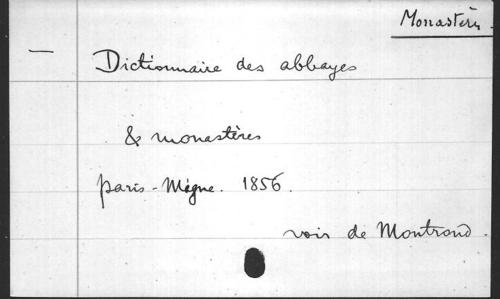 Monastères.
— Dictionnaire des abbayes
& monastères
paris - Migne. 1856.
voir de Montrond.